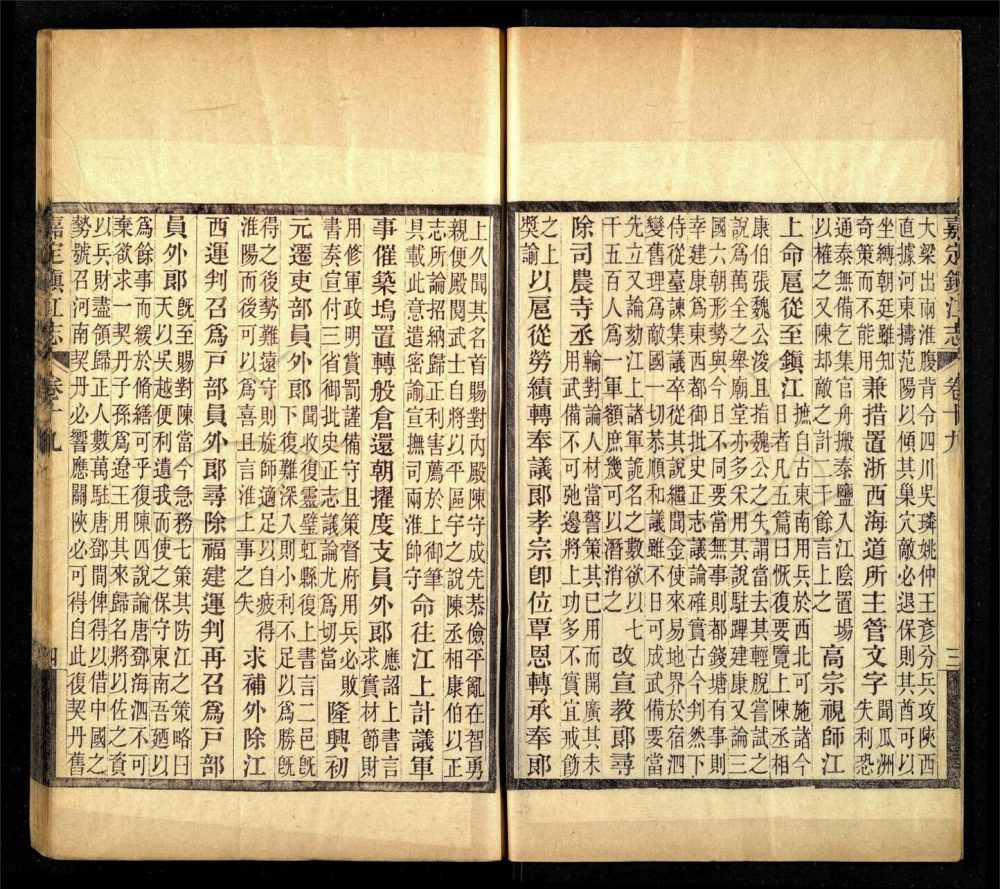 嘉定鎮江志 卷十九 三
大梁出兩淮腹背令四川吳璘姚仲王彥分兵攻陝西
直據河東擣范陽以傾其巢穴敵必退保則其酋可以
坐縛朝廷雖知
奇策而不能用
兼措置浙西海道所主管文字
聞瓜洲
失利恐
通泰無備乞集官舟搬泰鹽入江陰置場
以榷之又陳却敵之計二千餘言上之
高宗視師江
上命扈從至鎮江
摭自古東南用兵於西北可施諸今
日者凡五篇曰恢復要覽上陳丞相
康伯張魏公浚且指魏公之失謂當去其輕脫嘗試之
說爲萬全之舉廟堂亦多采用其說駐蹕建康又論三
國六朝形勢與今日不同要當無事則都錢塘有事則
幸建康爲東西都御批史正志議論確實古今判然下
侍從臺諫集議卒從其說繼聞金使來易地界於宿泗
變舊理爲敵國一切恭順和議雖不日可成武備要當
先立又論劾江上諸軍詭名之數欲以七
千五百人爲一軍額庶幾可以潛消之
改宣教郎尋
除司農寺丞
輪對論人材當警策其已用而開廣其未
用武備不可弛邊將上功多不實宜戒飭
之上
奬諭
以扈從勞績轉奉議郎孝宗卽位覃恩轉承奉郎
上久聞其名首賜對內殿陳守成先恭儉平亂在智勇
親便殿閱武士自將以平區宇之說陳丞相康伯以正
志所論招納歸正利害薦於上御筆
具載此意遣密諭宣撫司兩淮帥守
命往江上計議軍
事催築塢置轉般倉還朝擢度支員外郎
應詔上書言
求實材節財
用修軍政明賞罰謹備守且策督府用兵必敗
書奏宣付三省御批史正志議論尤爲切當
隆興初
元遷吏部員外郎
聞收復靈璧虹縣復上書言二邑旣
下復難深入則小利不足以爲勝旣
得之後勢難遠守則旋師適足以自疲得
淮陽而後可以爲喜且言淮上事之失
求補外除江
西運判召爲戶部員外郎尋除福建運判再召爲戶部
員外郎
旣至賜對陳當今急務七策其防江之策略曰
天以吳越便利遺我而使之保守東南吾廼以
爲餘事而緩於脩繕可乎復陳四說論唐鄧海泗不可
棄欲求一契丹子孫爲遼王用其來歸名將以佐之資
以兵財盡領歸正人數萬駐唐鄧間俾得以借中國之
勢號召河南契丹必響應關陝必可得自此復契丹舊
嘉定鎮江志 卷十九 四